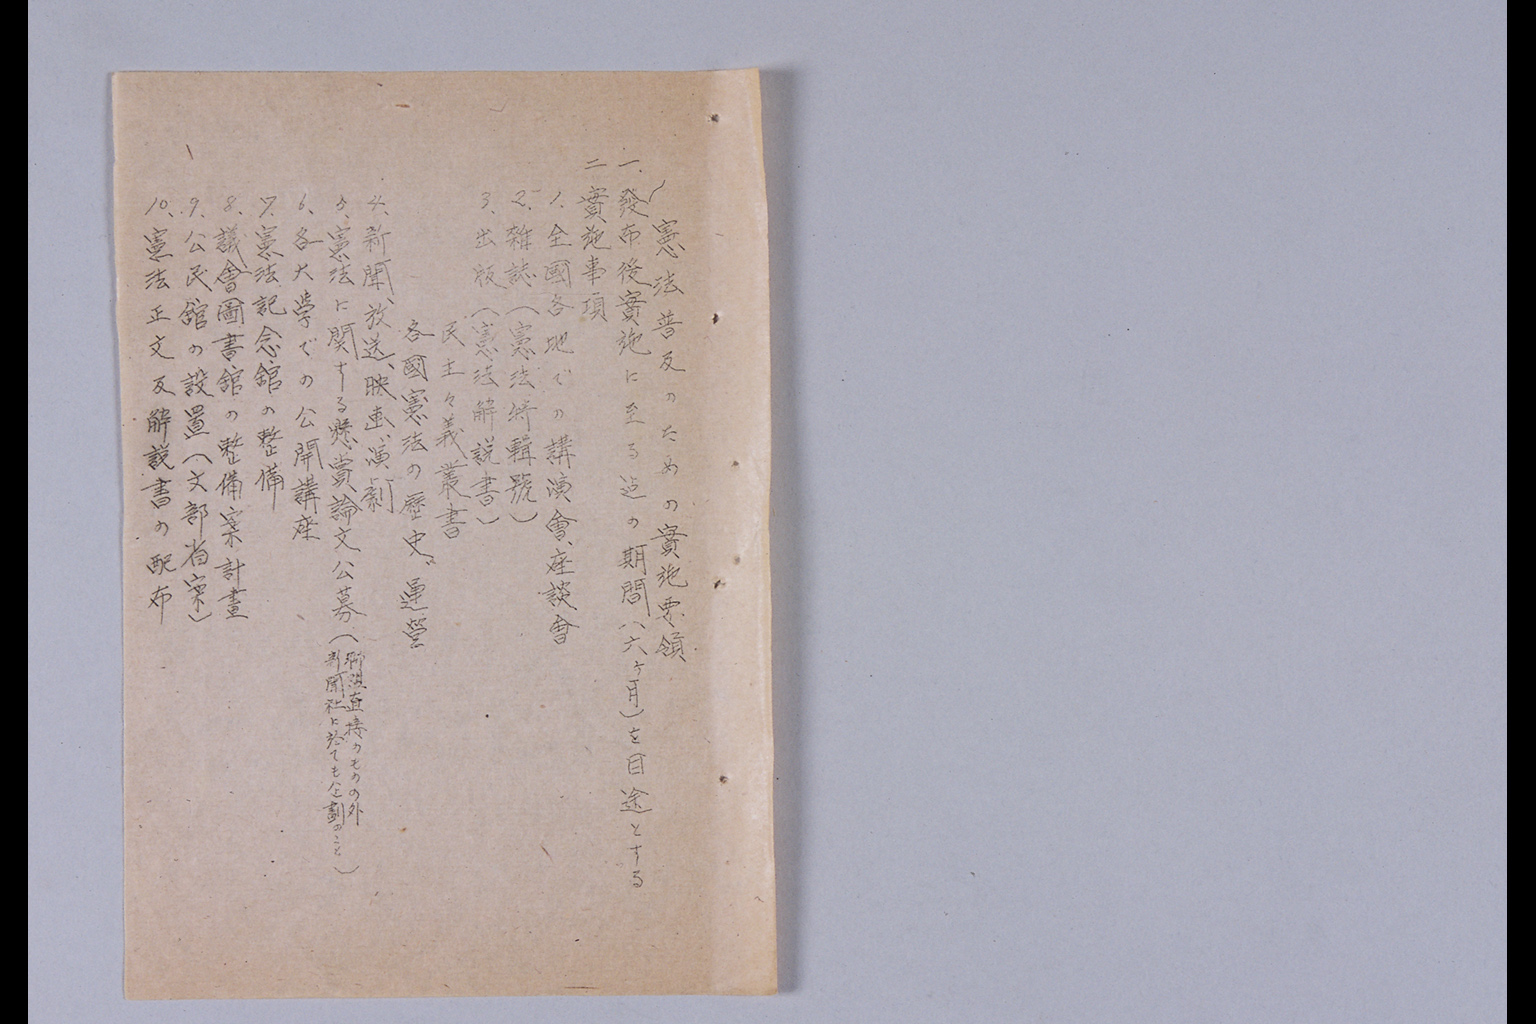 憲法普及のための實施要領
一、發布後實施に至る迄の期間(六ヶ月)を目途とする
二 實施事項
1、全國各地での講演會、座談會
2、雜誌(憲法特輯號)
3、出版(憲法解説書)
民主々義叢書
各國憲法の歷史、運營
4、新聞、放送、映画、演劇
5、憲法に関する懸賞論文公募(聯盟直接のものの外
新聞社に於ても企劃のこと)
6、各大学での公開講座
7、憲法記念館の整備
8、議會圖書館の整備案計畫
9、公民館の設置(文部省案)
10、憲法正文及解説書の配布